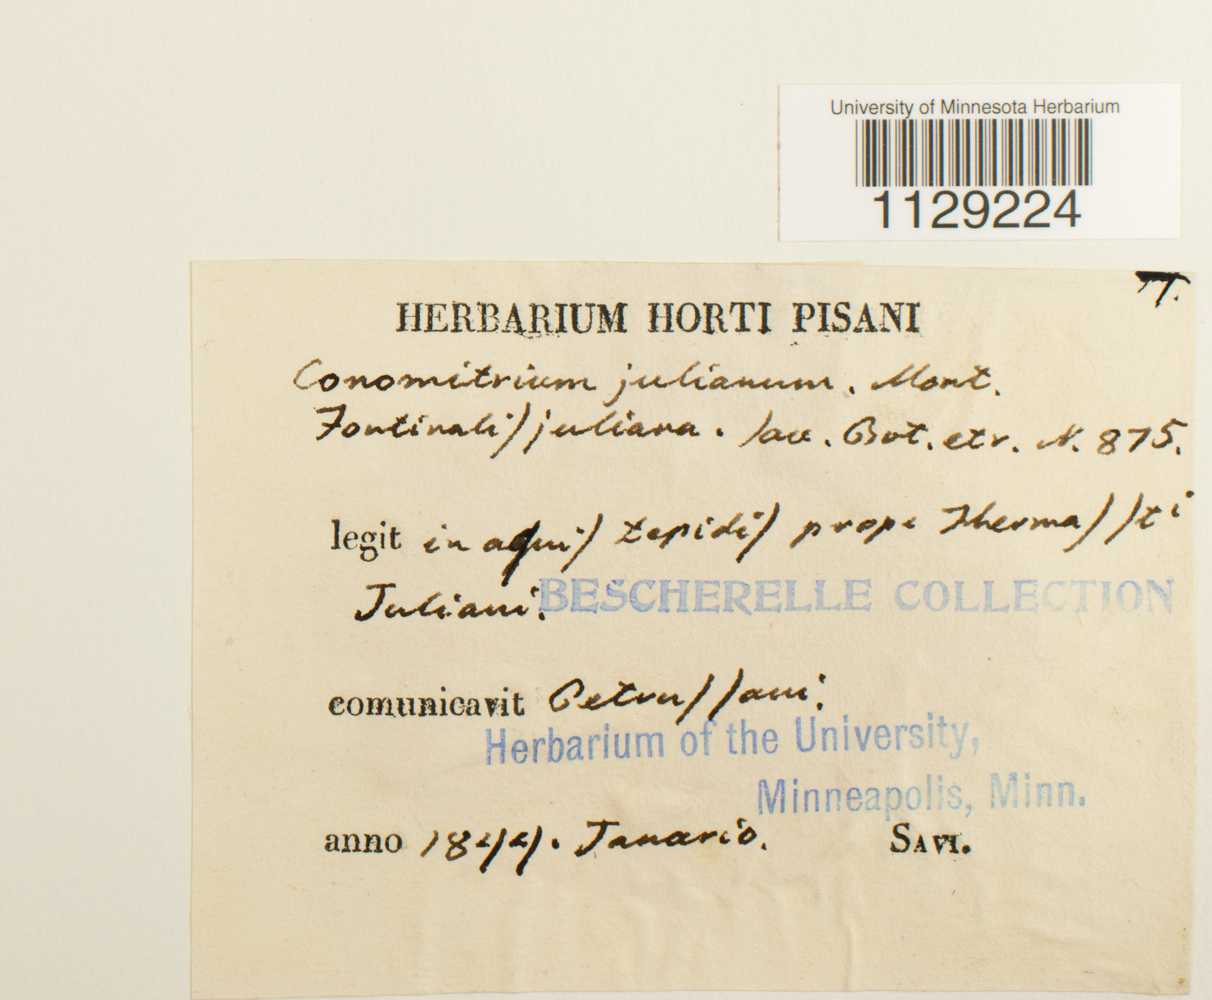 University of Minnesota Herbarium
1129224
T.
HERBARIUM HORTI PISANI
Conomitrium julianum. Mont.
Fontinalis juliana. Sav. Bot. etr. N. 875.
legit in aquis tepidis prope Thermas Sti
Juliani.
BESCHERELLE COLLECTION
comunicavit Petrus Savi.
Herbarium of the University,
Minneapolis, Minn.
anno 1844. Januario.
SAVI.